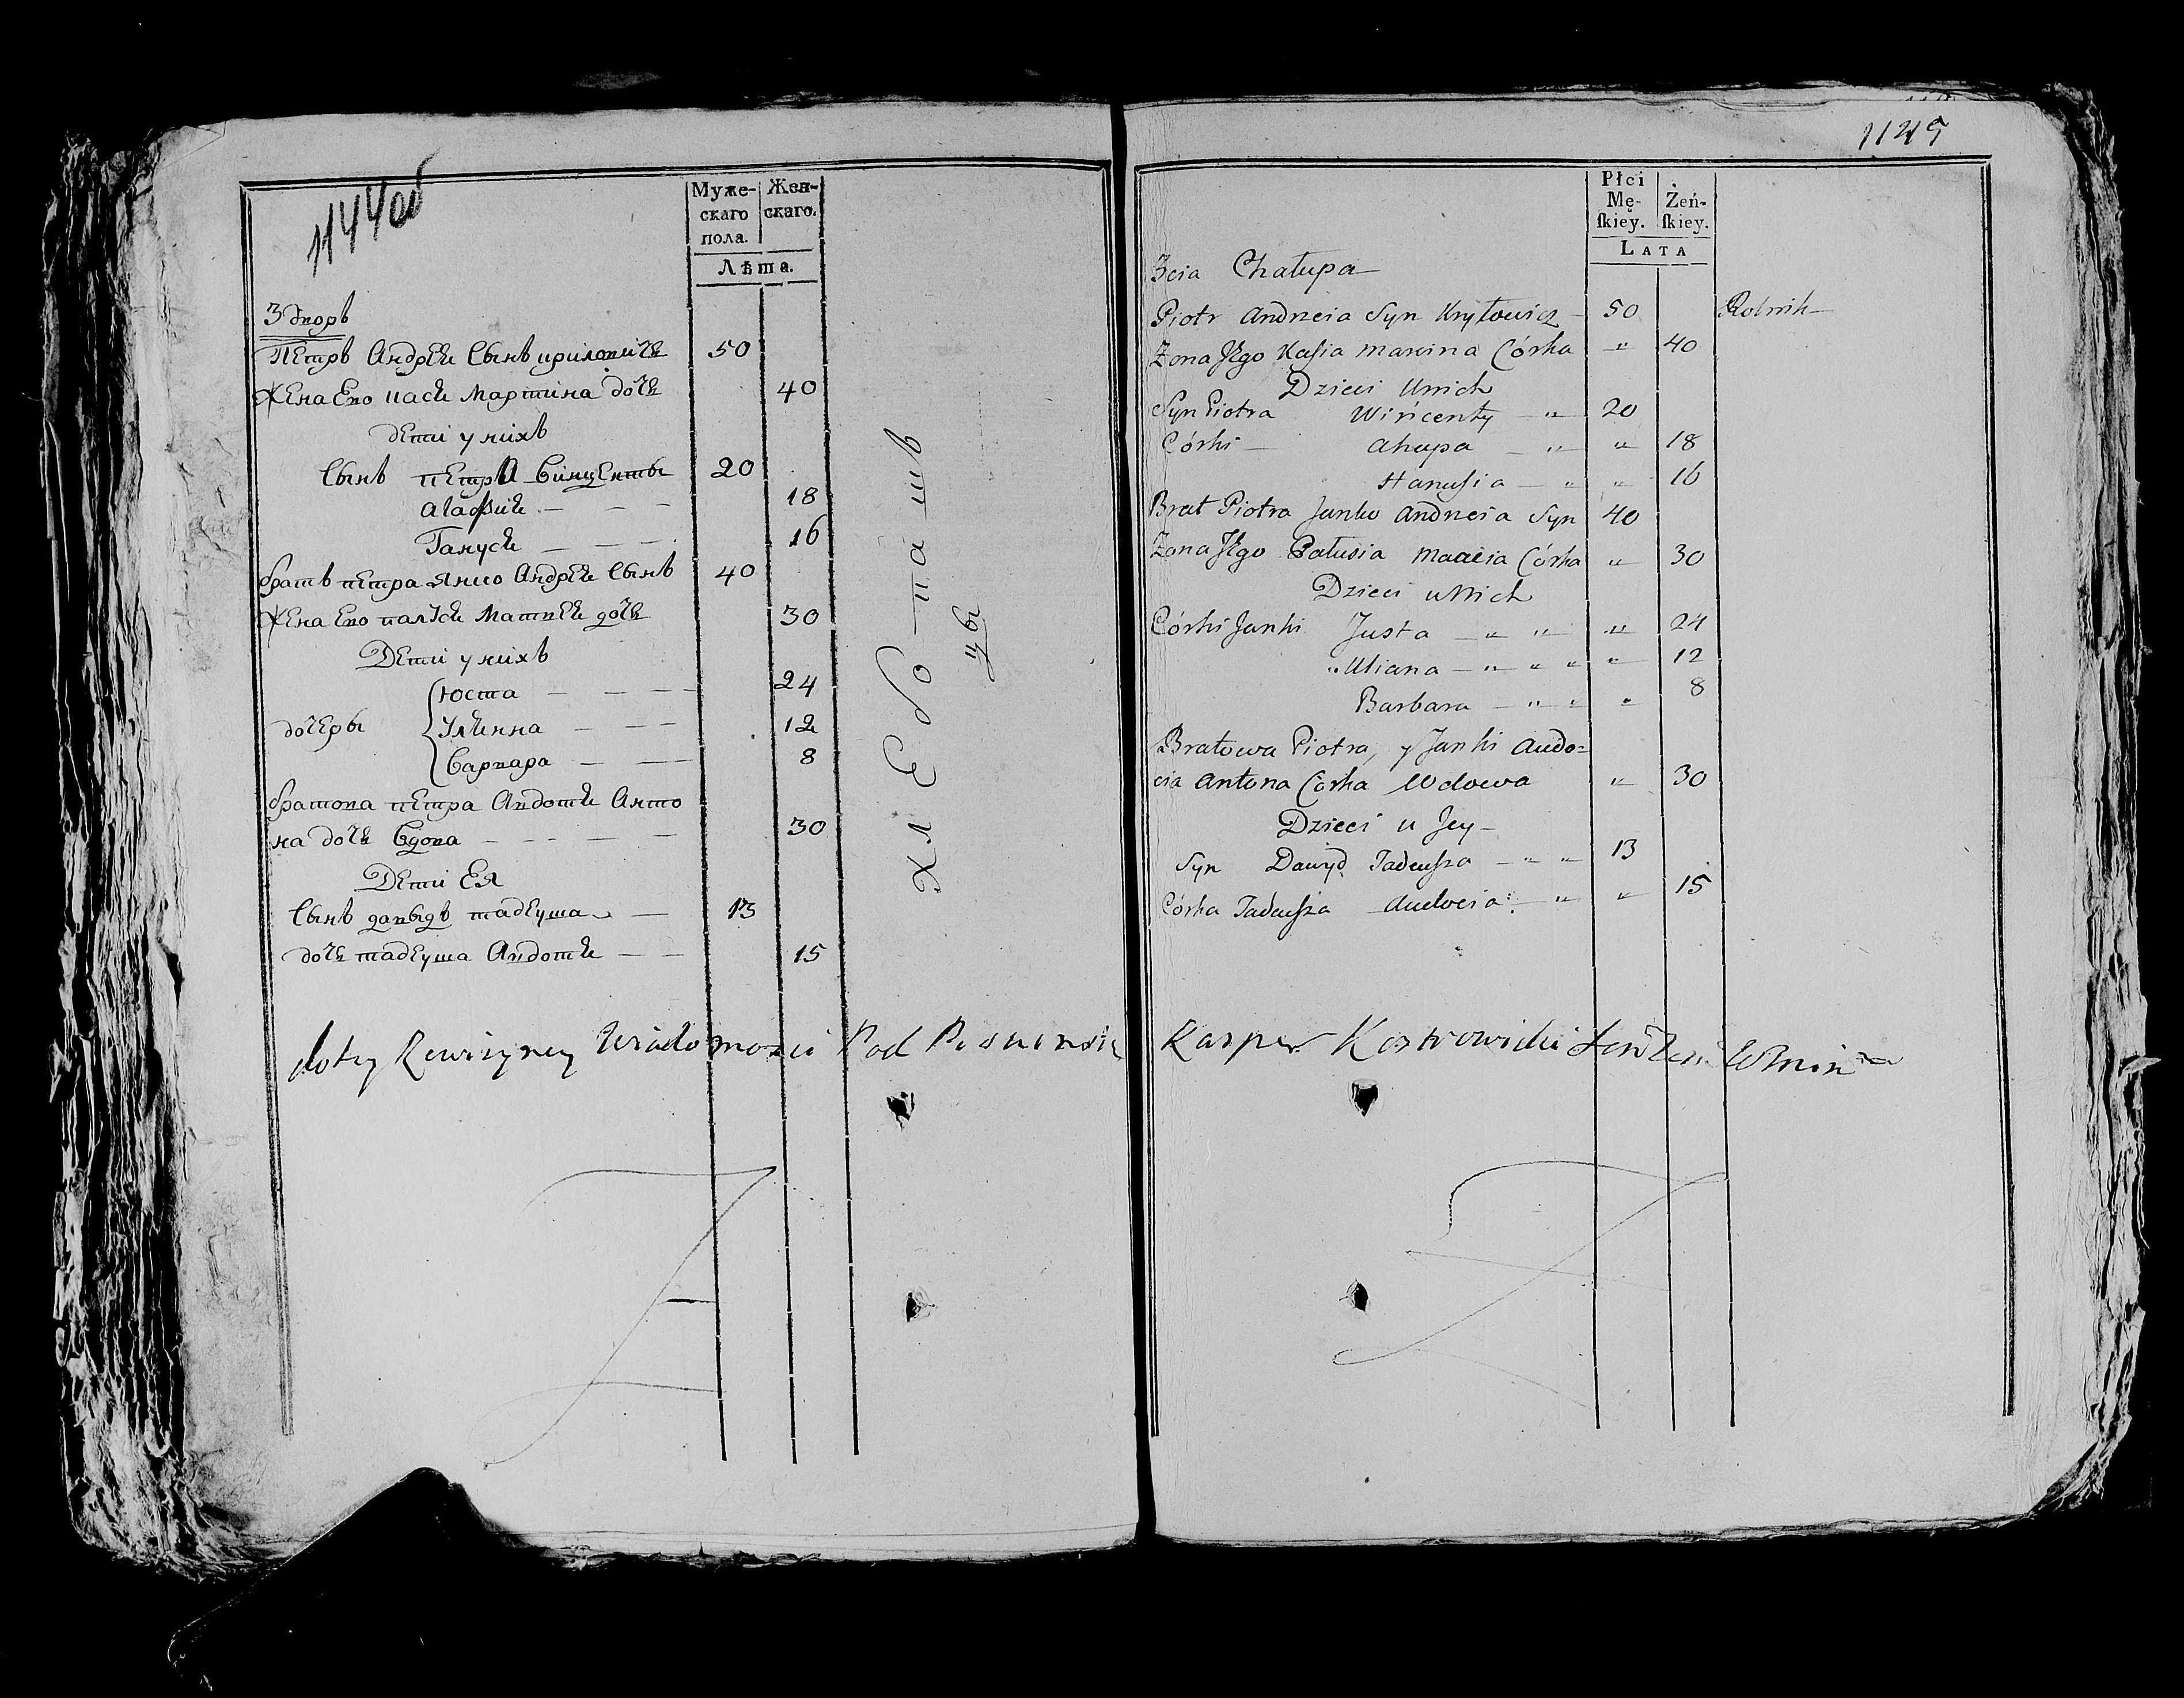 1144об
Муже-
скаго
пола.
Жен-
скаго.
Лѣта.
3 дворъ
Петръ Андрея сынъ криловичъ 50
жена Его кася Мартина дочь 40
дети у нихъ
сынъ петра Винценты 20
агафия — — — 18
Гануся — — — 16
братъ петра янко Андрея сынъ 40
жена Его палюся Матвея дочь 30
Дети у нихъ
дочеры
Юста — — — 24
Ульянна — — — 12
Варвара — — — 8
братова петра Авдотя Анто
на дочь вдова — — — 30
Дети Ея
сынъ давыдъ тадеуша — 13
дочь тадеуша Авдотя — — 15
хлебопашв
цы
1145
Płci
Mę-
ſkiey.
Żeń-
ſkiey.
LATA
3cia Chałupa
Piotr Andrzeia Syn Kryłowicz – 50 Rolnik
Żona Jego Kasia Marcina Córka — " 40
Dzieci U nich
Syn Piotra Wińcenty — " 20
Córki — Ahapa — " " 18
Hanusia — " " 16
Brat Piotra Janko Andrzeia Syn 40
Żona Jego Palusia Macieia Córka " 30
Dzieci u Nich
Córki Janki Justa — " " " 24
" Uliana — " " " " 12
Barbara — " " " 8
Bratowa Piotra, y Janki Audo=
cia Antona Córka Wdowa " 30
Dzieci u Jey —
Syn Dawyd Tadeusza — " " 13
Córka Tadeusza Audocia — " " 15
do tey Rewizyney Wiadomosci Kasper Kostrowicki